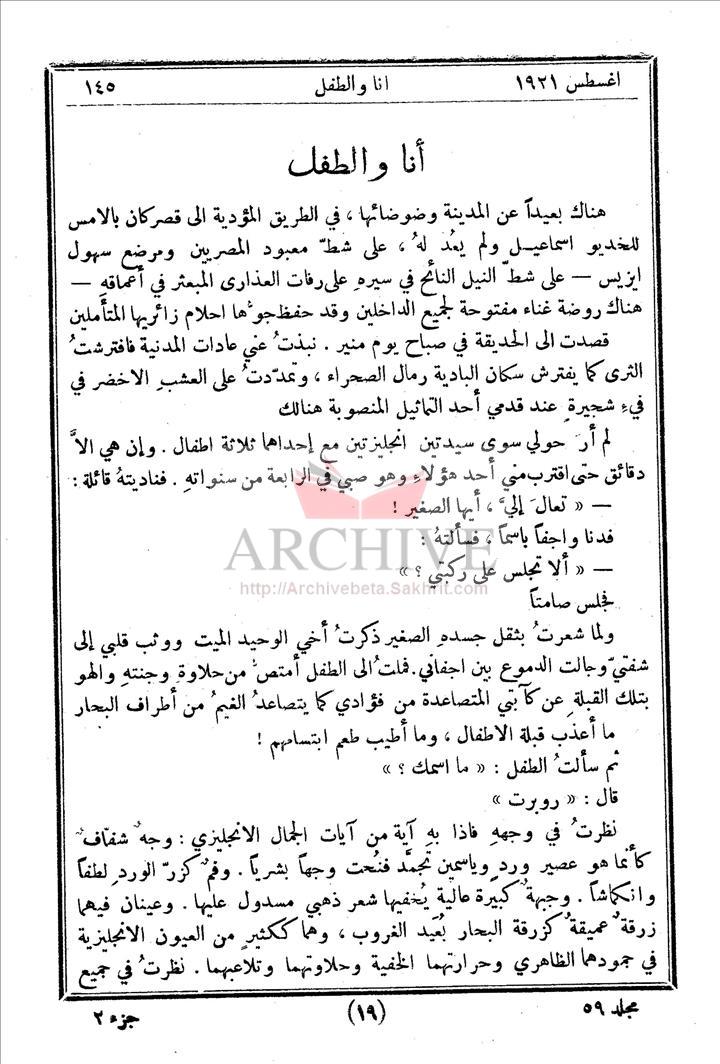 اغسطس ١٩٢١ انا والطفل ١٤٥
أنا والطفل
هناك بعيداً عن المدينة وضوضائها ، في الطريق المؤدية الى قصر كان بالامس
للخديو اسماعيل ولم يعُد لهُ ، على شطّ معبود المصريين ومرضع سهول
ايزيس — على شطّ النيل النائح في سيرهِ على رفات العذارى المبعثر في أعماقهِ —
هناك روضة غناء مفتوحة لجميع الداخلين وقد حفظ جوُّها احلام زائريها المتأملين
قصدت الى الحديقة في صباح يوم منير . نبذتُ عني عادات المدنية فافترشتُ
الثرى كما يفترش سكان البادية رمال الصحراء ، وتمدّدتُ على العشبِ الاخضر في
فيءِ شجيرةٍ عند قدمي أحد التماثيل المنصوبة هنالك
لم أرَ حولي سوى سيدتين انجليزتين مع إحداهما ثلاثة اطفال . وإن هي الاَّ
دقائق حتى اقترب مني أحد هؤلاءِ وهو صبي في الرابعة من سنواتهِ . فناديتهُ قائلة :
— « تعالَ إليَّ ، أيها الصغير !
فدنا واجفاً باسماً ، فسألتهُ :
— « ألا تجلس على ركبتي ؟ »
فجلس صامتاً
ARCHIVE
http://Archivebeta.Sakhrit.com
ولما شعرتُ بثقل جسدهِ الصغير ذكرتُ أخي الوحيد الميت ووثب قلبي إلى
شفتيّ وجالت الدموع بين اجفاني. فملتُ الى الطفل أمتصُّ من حلاوة وجنتهِ والهو
بتلك القبلةِ عن كآبتي المتصاعدة من فؤادي كما يتصاعدُ الغيمُ من أطراف البحار
ما أعذب قبلة الاطفال ، وما أطيب طعم ابتسامهم !
ثم سألتُ الطفل : « ما اسمك ؟ »
قال : « روبرت »
نظرتُ في وجههِ فاذا بهِ آية من آيات الجمال الانجليزي : وجهٌ شفّافٌ
كأنما هو عصير وردٍ وياسمين تجمَّد فنُحت وجهاً بشرياً . وفمٌ كزرّ الوردِ لطفاً
وانكماشاً . وجبهةٌ كبيرة عالية يُخفيها شعر ذهبي مسدول عليها . وعينان فيهما
زرقةٌ عميقةٌ كزرقة البحار بُعَيد الغروب ، وهما ككثيرٍ من العيون الانجليزية
في جمودهما الظاهري وحرارتهما الخفية وحلاوتهما وتلاعبهما . نظرتُ في جميع
مجلد ٥٩ (١٩) جزء ٢